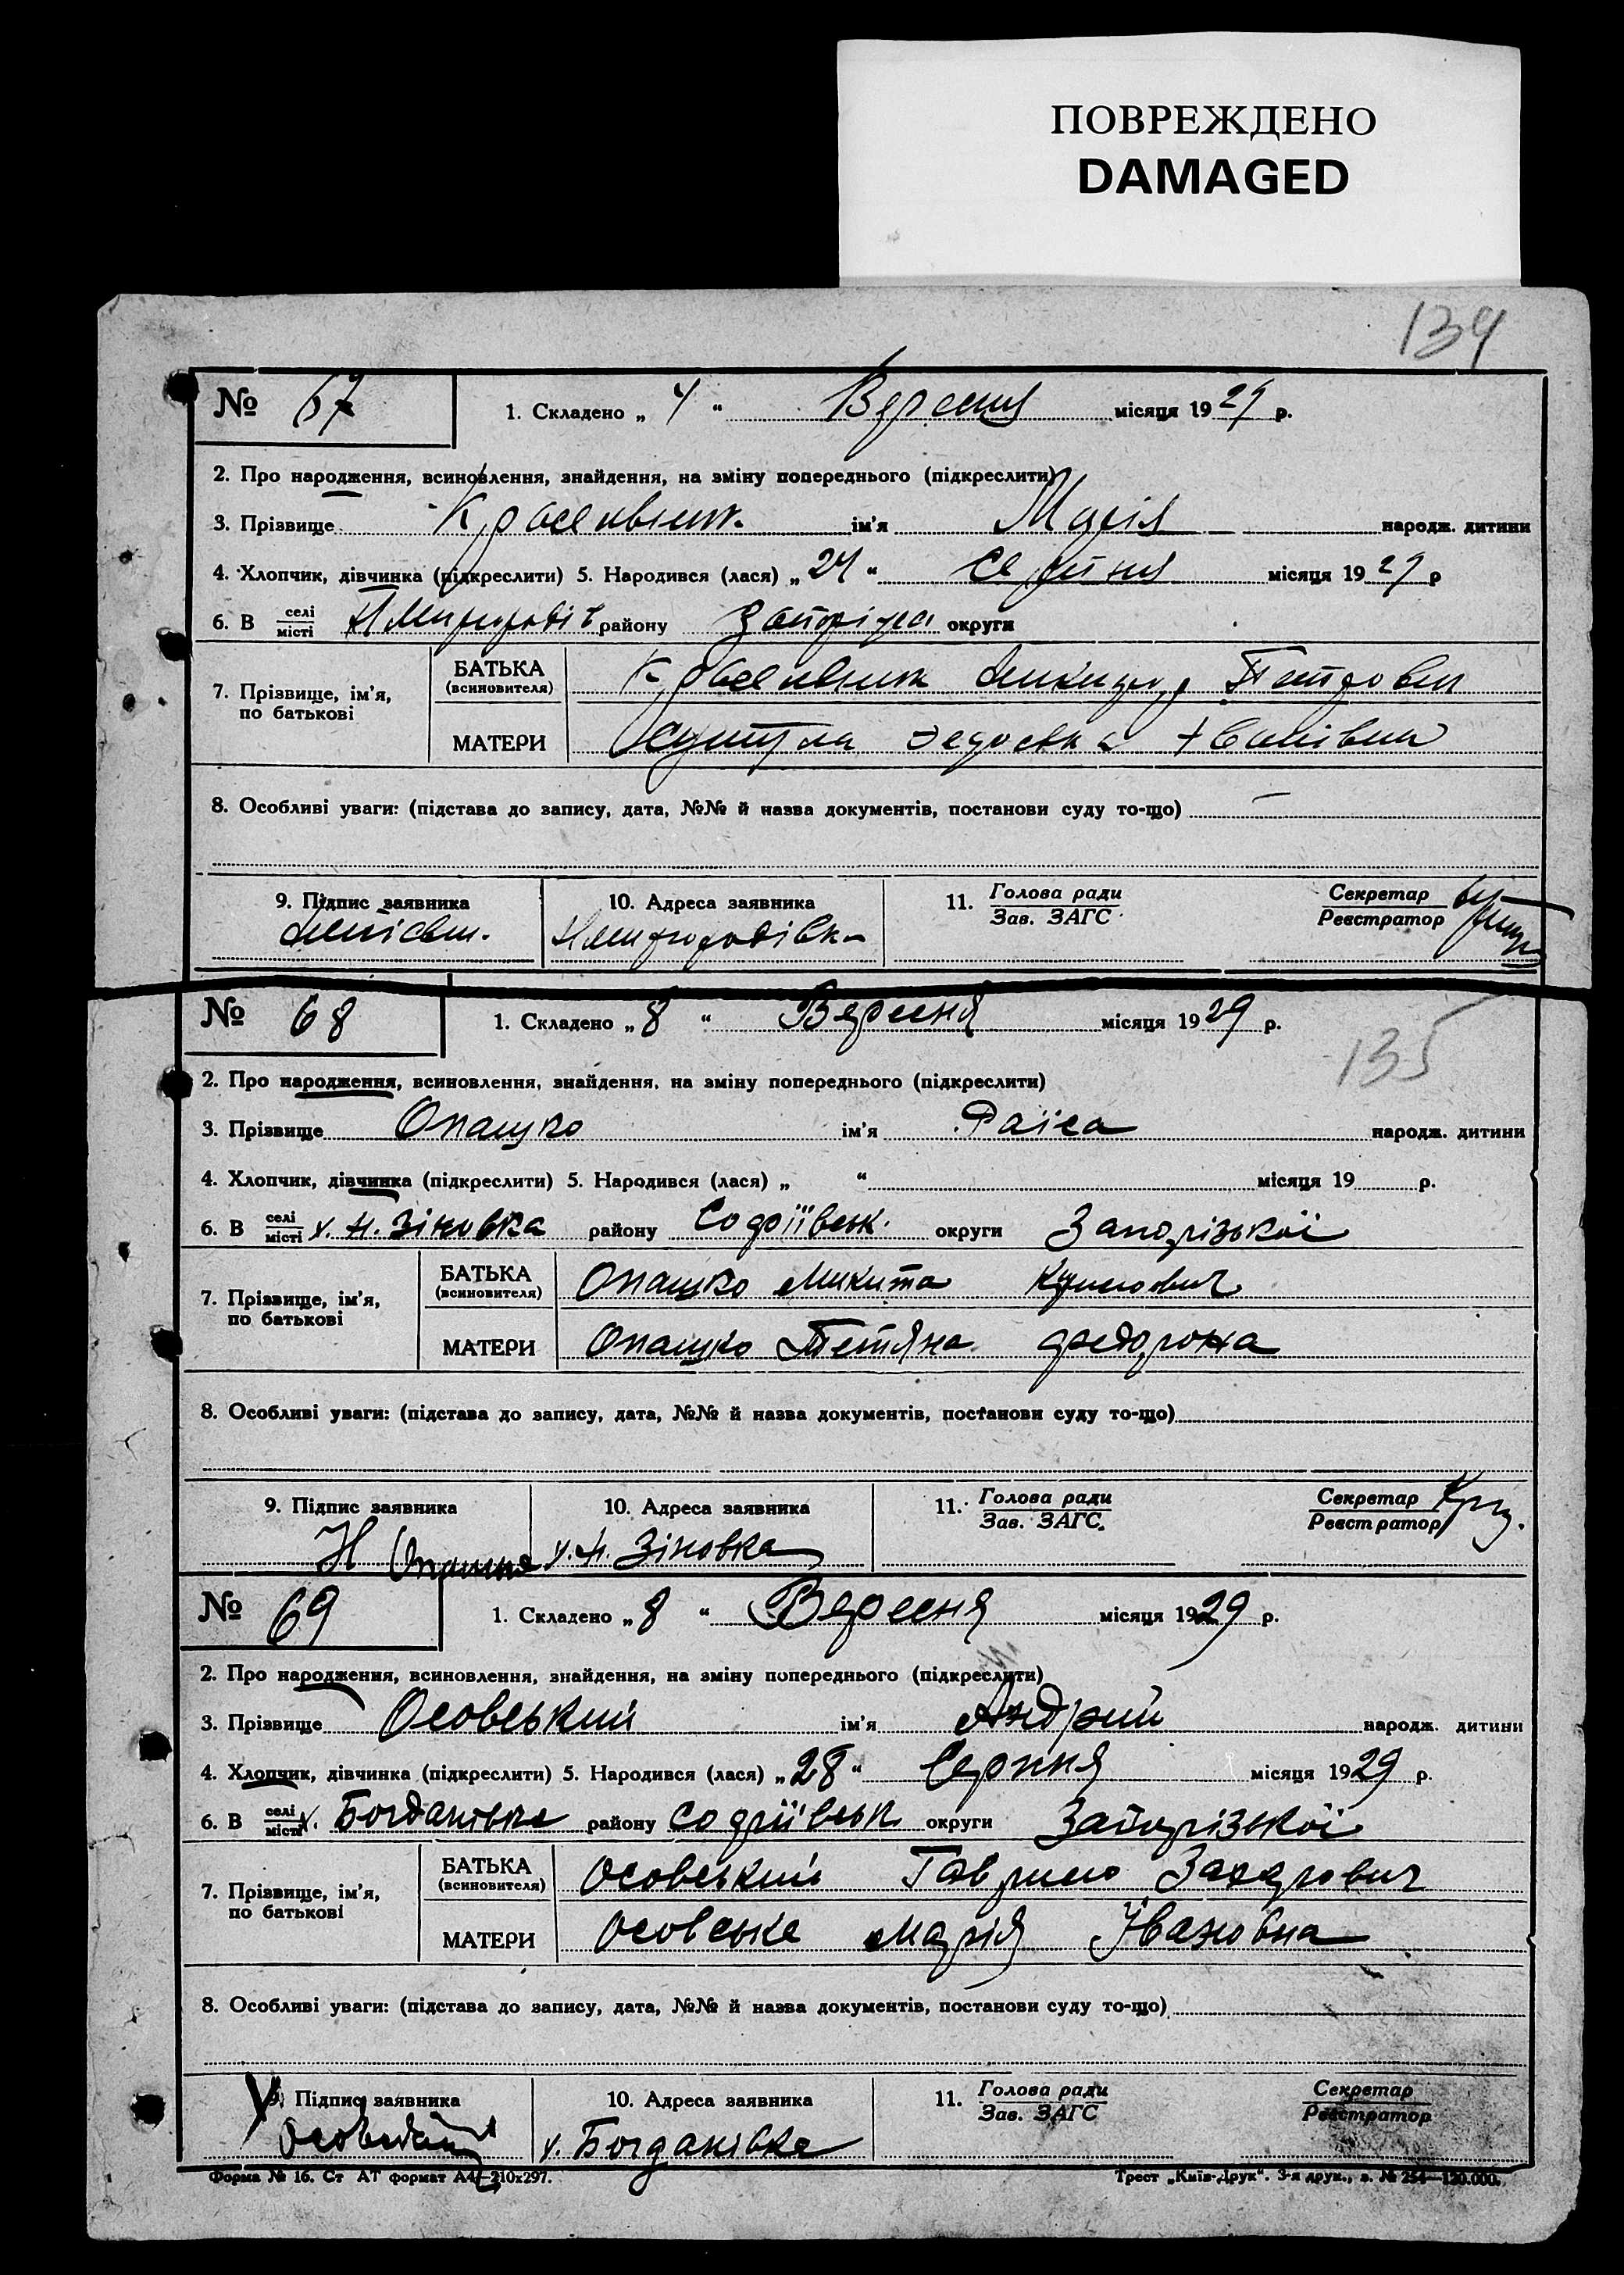 ПОВРЕЖДЕНО
DAMAGED
134
№ 67 1. Складено „ 4 “ Вересня місяця 1929 р.
2. Про народження, всиновлення, знайдення, на зміну попереднього (підкреслити)
3. Прізвище ім'я Марія народж. дитини
4. Хлопчик, дівчинка (підкреслити) 5. Народився (лася) „ 24 “ місяця 1929 р
6. В селі/місті району округи
7. Прізвище, ім'я, по батькові
БАТЬКА (всиновителя) Петрович
МАТЕРИ Іванівна
8. Особливі уваги: (підстава до запису, дата, №№ й назва документів, постанови суду то-що) —
9. Підпис заявника 10. Адреса заявника 11. Голова ради/Зав. ЗАГС Секретар/Реєстратор
№ 68 1. Складено „ 8 “ Вересня місяця 1929 р.
135
2. Про народження, всиновлення, знайдення, на зміну попереднього (підкреслити)
3. Прізвище Опашко ім'я Раїса народж. дитини
4. Хлопчик, дівчинка (підкреслити) 5. Народився (лася) „ “ місяця 19 р.
6. В селі/місті х. Н. Зіновка району Софіївськ. округи Запорізької
7. Прізвище, ім'я, по батькові
БАТЬКА (всиновителя) Опашко Микита
МАТЕРИ Опашко Тетяна
8. Особливі уваги: (підстава до запису, дата, №№ й назва документів, постанови суду то-що)
9. Підпис заявника 10. Адреса заявника 11. Голова ради/Зав. ЗАГС. Секретар/Реєстратор
Н Опашко х. Н. Зіновка
№ 69 1. Складено „ 8 “ Вересня місяця 1929 р.
2. Про народження, всиновлення, знайдення, на зміну попереднього (підкреслити)
3. Прізвище Осовський ім'я Андрий народж. дитини
4. Хлопчик, дівчинка (підкреслити) 5. Народився (лася) „ 28 “ Серпня місяця 1929 р.
6. В селі/місті х. Богданівка району Софіївськ округи Запорізької
7. Прізвище, ім'я, по батькові
БАТЬКА (всиновителя) Осовський Гаврило Захарович
МАТЕРИ Осовська Марія Івановна
8. Особливі уваги: (підстава до запису, дата, №№ й назва документів, постанови суду то-що)
9. Підпис заявника 10. Адреса заявника 11. Голова ради/Зав. ЗАГС Секретар/Реєстратор
х. Богданівка
Форма № 16. Ст АТ формат А4—210х297. Трест „Київ-Друк“. 3-я друк., з. № 254—120.000.